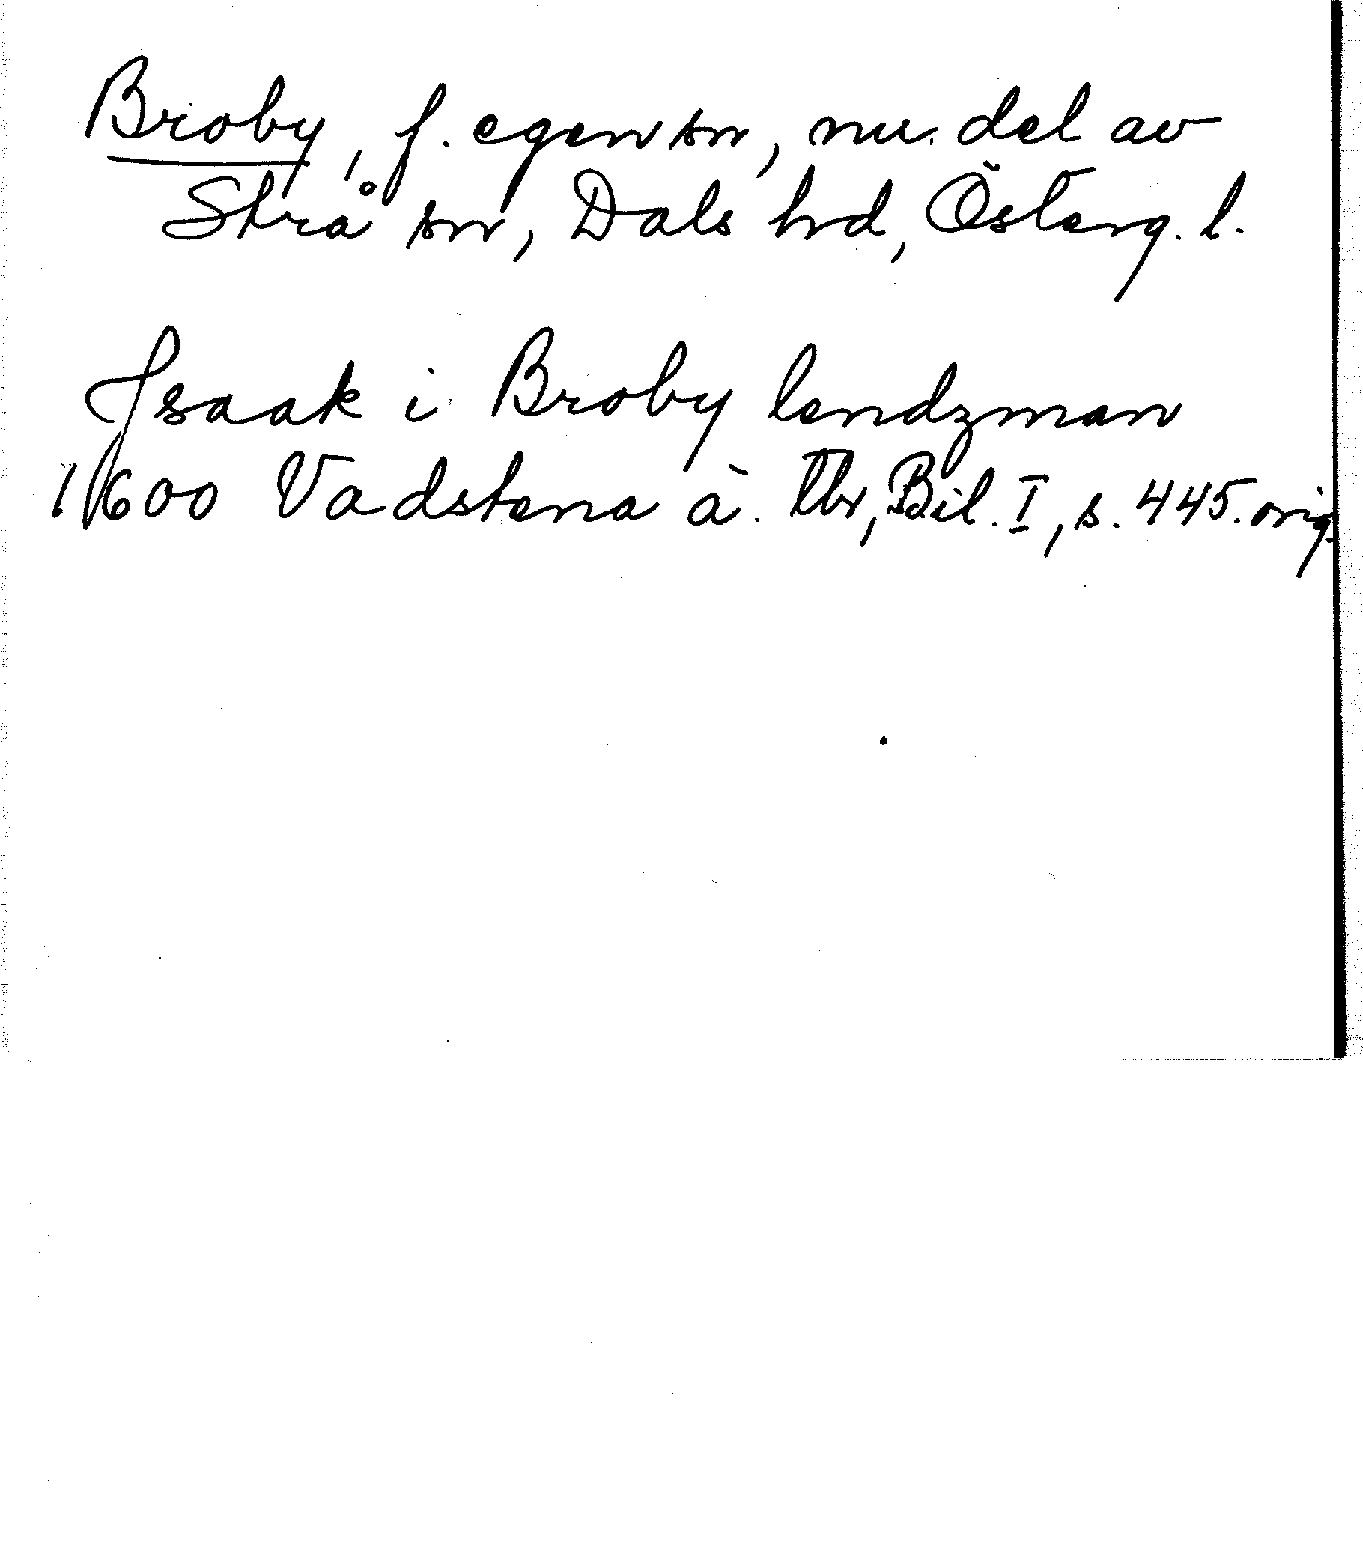 Broby, f. egen sn, nu del av
Strå sn, Dals hd, Österg. l.
Isaak i Broby lendzman
1600 Vadstena ä. tbr, Bil. I, s. 445. orig.